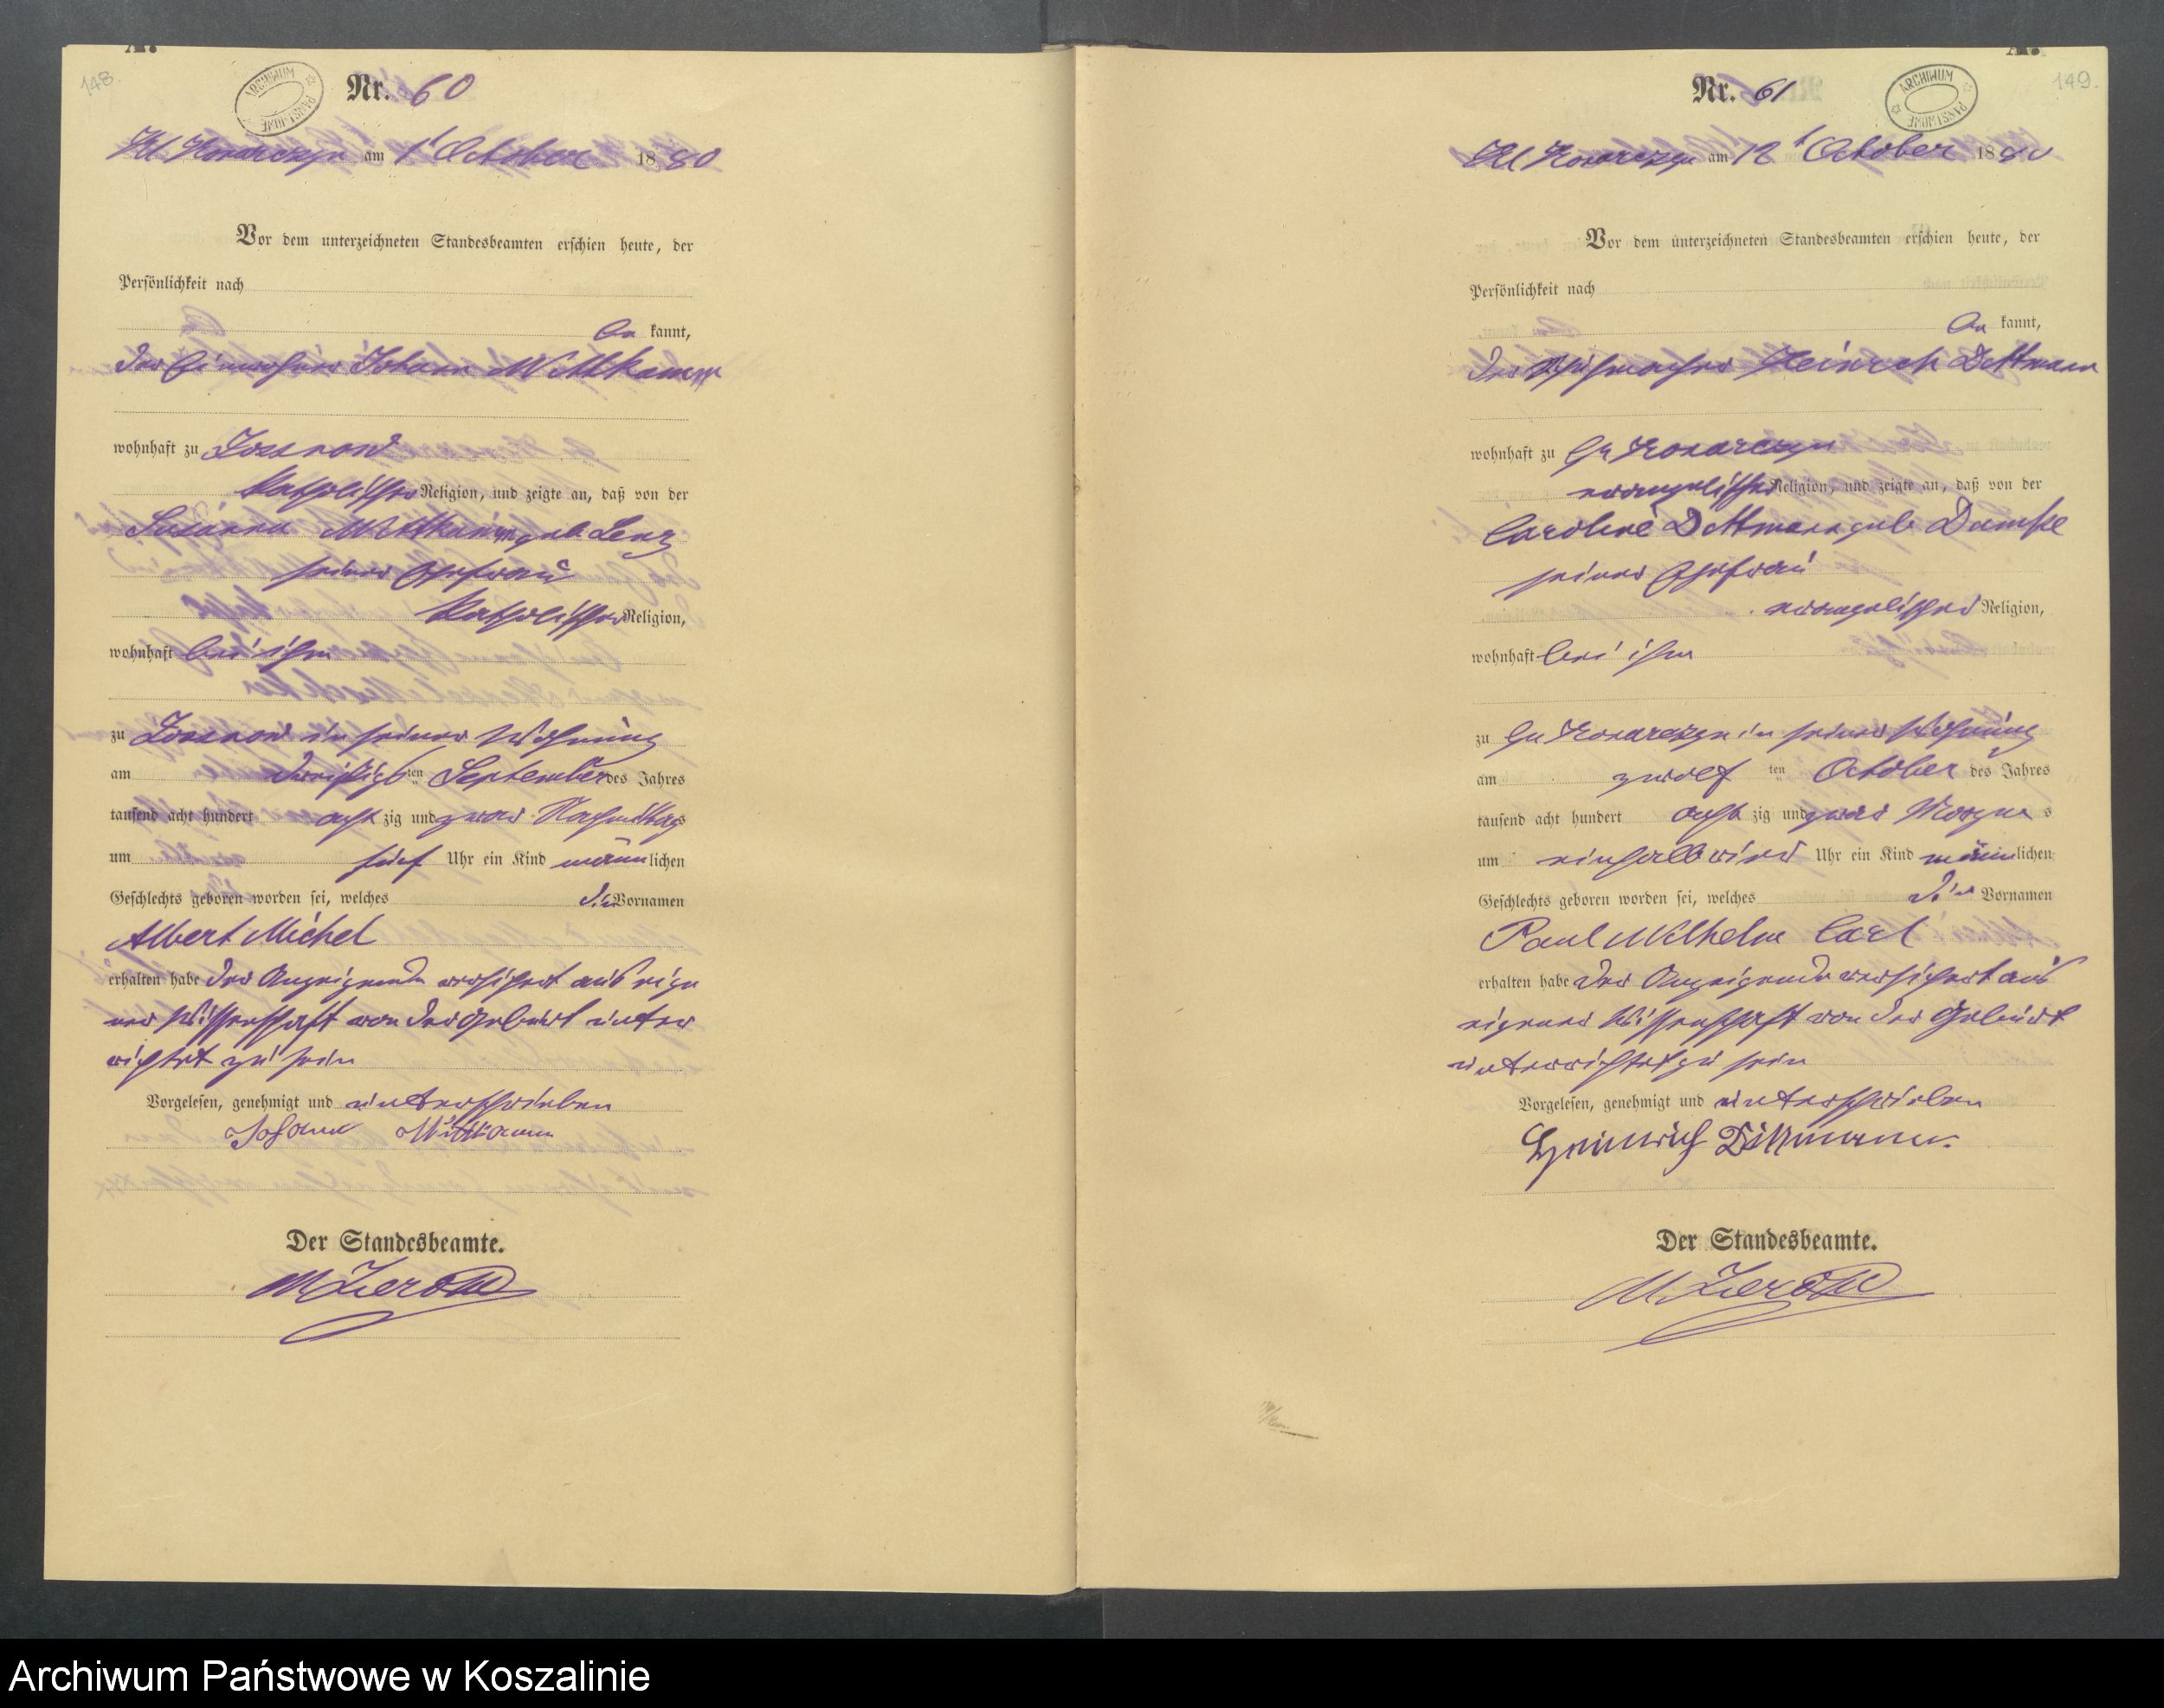 148.
ARCHIWUM PAŃSTWOWE
Nr. 60
Kl Konarczyn am 1t October 1880
Vor dem unterzeichneten Standesbeamten erschien heute, der
Persönlichkeit nach
be kannt,
der Einwohner Johann Wittkamm
wohnhaft zu
katholischer Religion, und zeigte an, daß von der
Susanna Wittkamm geb. Lenz
seiner Ehefrau
katholischer Religion,
wohnhaft bei ihm
zu in seiner Wohnung
am dreißigsten September des Jahres
tausend acht hundert acht zig und zwar Nachmittags
um fünf Uhr ein Kind männlichen
Geschlechts geboren worden sei, welches die Vornamen
Albert Michel
erhalten habe der Anzeigende versichert aus eige
ner Wissenschaft von der Geburt unter
richtet zu sein
Vorgelesen, genehmigt und unterschrieben
Johann
Der Standesbeamte.
149.
ARCHIWUM PAŃSTWOWE
Nr. 61
Kl Konarczyn am 12t October 1880
Vor dem unterzeichneten Standesbeamten erschien heute, der
Persönlichkeit nach
be kannt,
der Heinrch Dittmann
wohnhaft zu Gr Konarczyn
evangelischer Religion, und zeigte an, daß von der
Caroline Dittmann geb
seiner Ehefrau
evangelischer Religion,
wohnhaft bei ihm
zu Gr Konarczyn in seiner Wohnung
am zwölf ten October des Jahres
tausend acht hundert acht zig und zwar Morgens
um einhalb vier Uhr ein Kind männlichen
Geschlechts geboren worden sei, welches die Vornamen
Paul Wilhelm Carl
erhalten habe der Anzeigende versichert aus
eigener Wissenschaft von der Geburt
unterrichtet zu sein
Vorgelesen, genehmigt und unterschrieben
Heinrich Dittmann.
Der Standesbeamte.
Archiwum Państwowe w Koszalinie